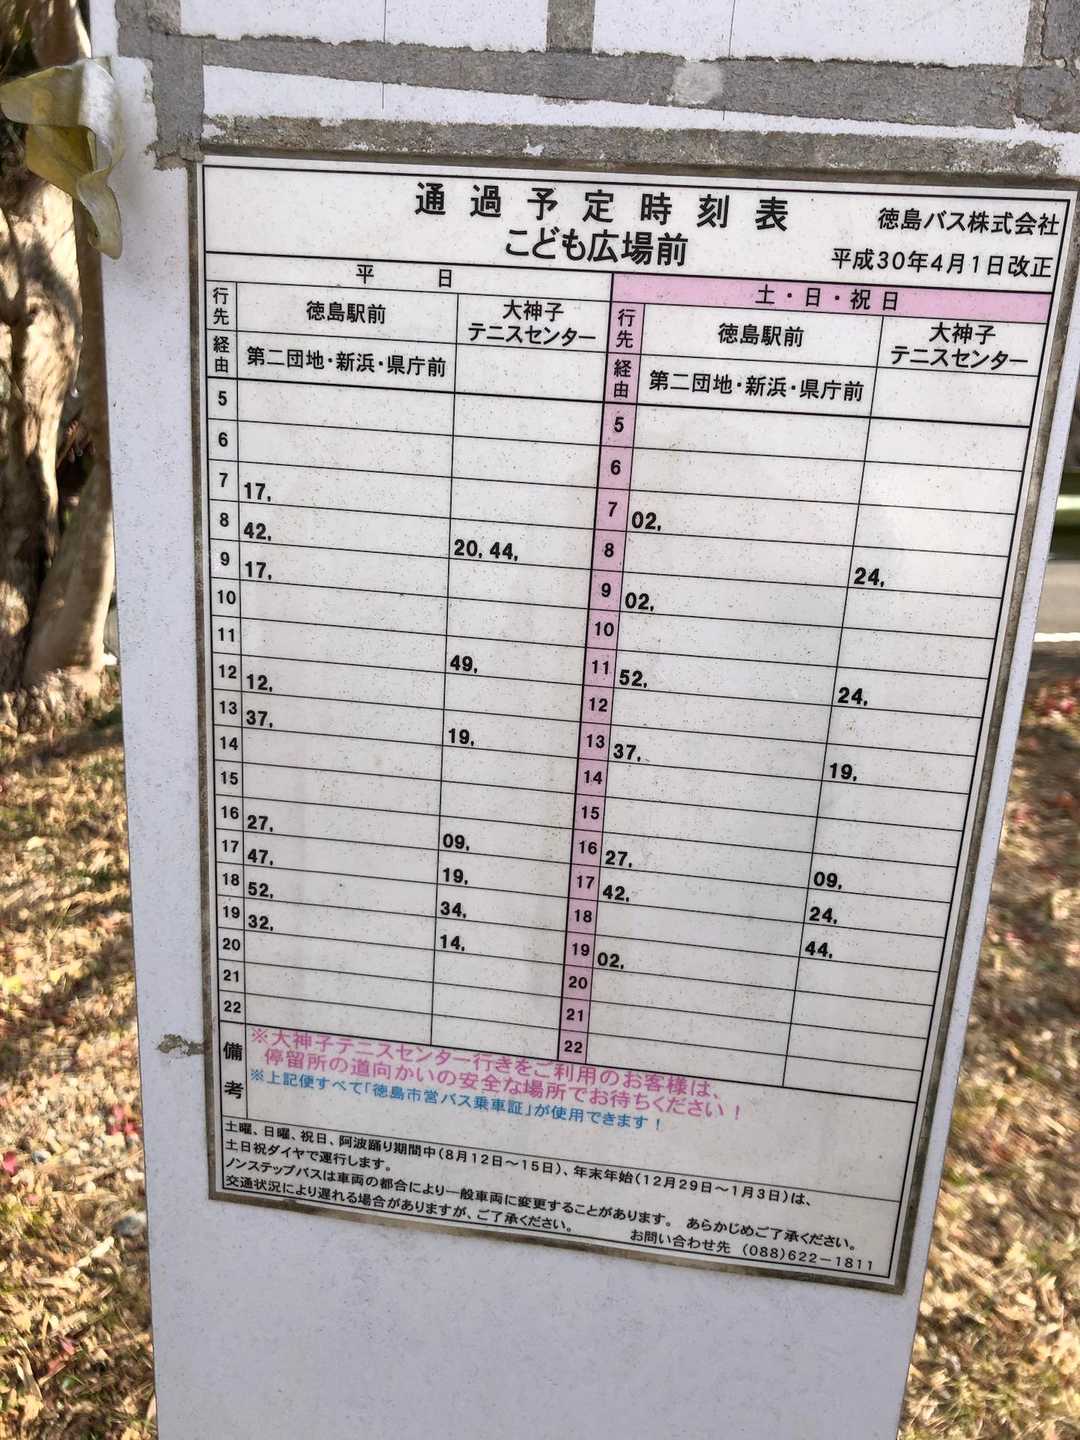 通過予定時刻表
徳島バス株式会社
こども広場前
平成30年4月1日改正
平 日 土・日・祝日
行先 徳島駅前 大神子テニスセンター 行先 徳島駅前 大神子テニスセンター
経由 第二団地・新浜・県庁前 経由 第二団地・新浜・県庁前
5 5
6 6
7 17, 7 02,
8 42, 20, 44, 8 24,
9 17, 9 02,
10 10
11 49, 11 52, 24,
12 12, 12
13 37, 19, 13 37, 19,
14 14
15 15
16 27, 09, 16 27, 09,
17 47, 19, 17 42, 24,
18 52, 34, 18 44,
19 32, 14, 19 02,
20 20
21 21
22 22
備考
※大神子テニスセンター行きをご利用のお客様は、
停留所の道向かいの安全な場所でお待ちください！
※上記便すべて「徳島市営バス乗車証」が使用できます！
土曜、日曜、祝日、阿波踊り期間中(8月12日～15日)、年末年始(12月29日～1月3日)は、
土日祝ダイヤで運行します。
ノンステップバスは車両の都合により一般車両に変更することがあります。 あらかじめご了承ください。
交通状況により遅れる場合がありますが、ご了承ください。
お問い合わせ先 (088)622－1811